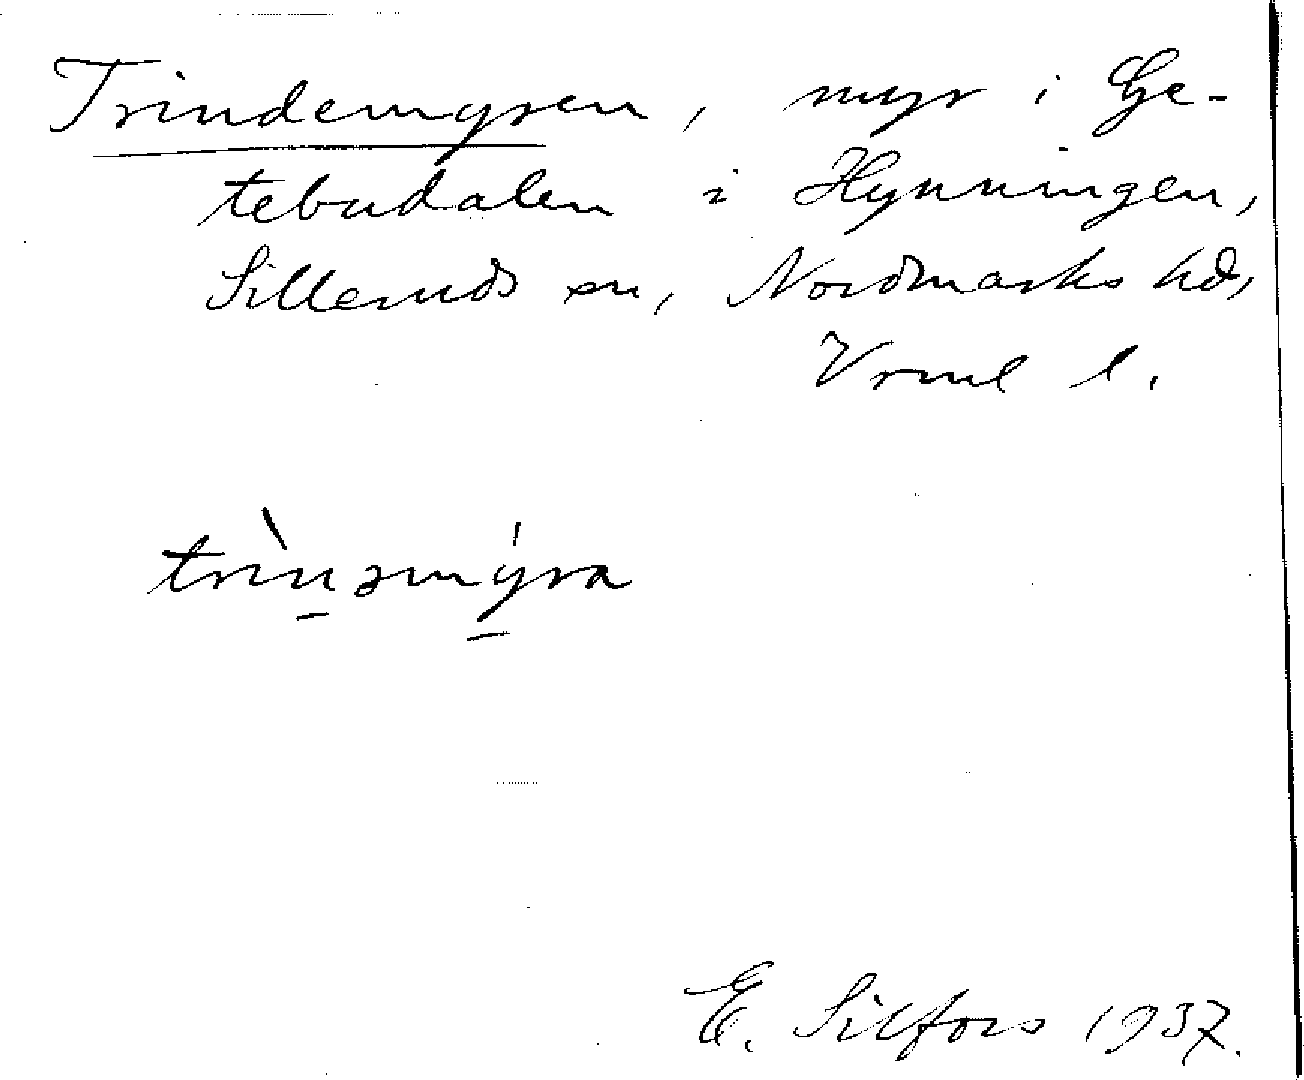 Trindemyren, myr i Ge-
tebudalen i Hynningen,
Silleruds sn, Nordmarks hd,
Vrml l.
trìn̠əmý̠ra
E. Silfors 1937.